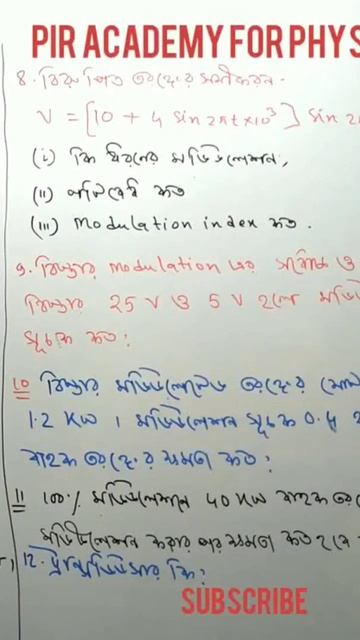 PIR ACADEMY FOR PHYS
৪. নিম্নলিখিত তরঙ্গের সমীকরণ-
V = [10 + 4 sin 2πt×10³] sin 2
(i) কি ধরনের মডিউলেশন,
(ii) কত
(iii) Modulation index কত.
9. বিস্তার modulation এর সর্বোচ্চ ও
বিস্তার 25 V ও 5 V হলে
সূচক কত?
10 বিস্তার মডিউলেটেড তরঙ্গের মোট
1.2 KW । মডিউলেশন সূচক 0.4
বাহক তরঙ্গের ক্ষমতা কত?
11 100% মডিউলেশনে 40 KW বাহক
মডিউলেশন করার পর ক্ষমতা কত হবে
12. ট্রান্সডিউসার কি?
SUBSCRIBE